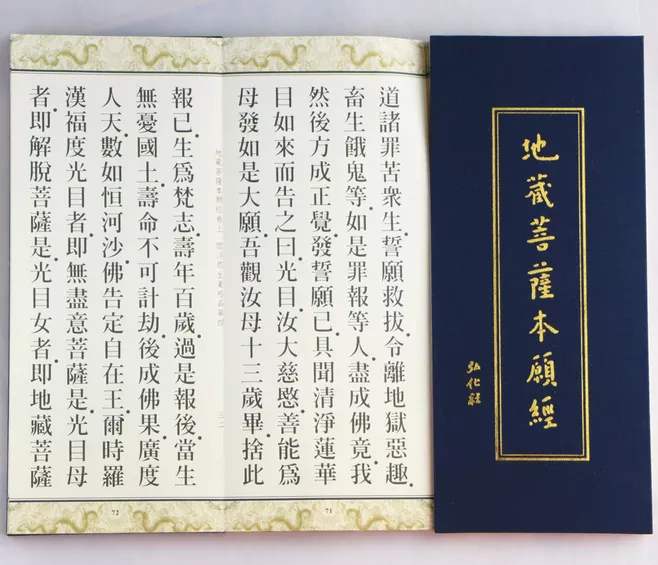 地藏菩薩本願經
弘化社
道諸罪苦衆生。誓願救拔。令離地獄惡趣。
畜生餓鬼等。如是罪報等人。盡成佛竟。我
然後方成正覺。發誓願已。具聞清淨蓮華
目如來而告之曰。光目。汝大慈愍。善能爲
母發如是大願。吾觀汝母十三歲畢。捨此
71
報已。生爲梵志。壽年百歲。過是報後。當生
無憂國土。壽命不可計劫。後成佛果。廣度
人天。數如恒河沙。佛告定自在王。爾時羅
漢福度光目者。即無盡意菩薩是。光目母
者。即解脫菩薩是。光目女者。即地藏菩薩
72